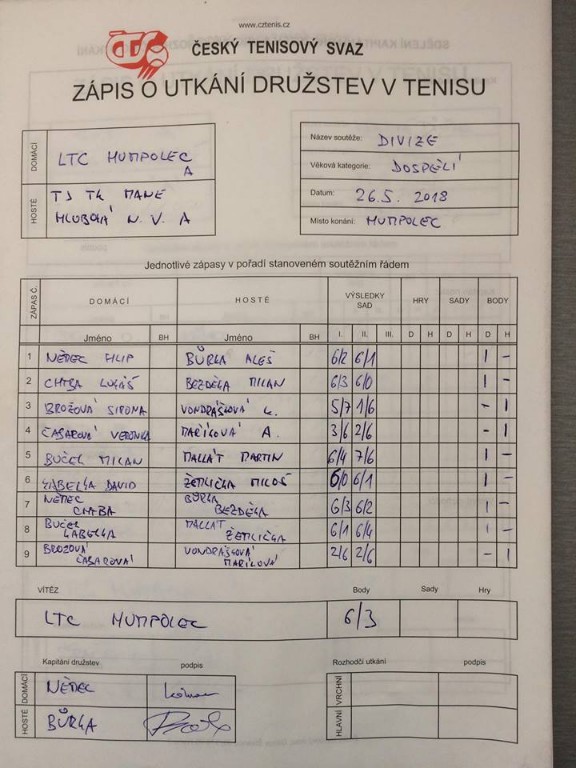 www.cztenis.cz
ČTS
ČESKÝ TENISOVÝ SVAZ
ZÁPIS O UTKÁNÍ DRUŽSTEV V TENISU
DOMÁCÍ LTC HUMPOLEC A
HOSTÉ TJ TK MANE
HLUBOKÁ N. V. A
Název soutěže: DIVIZE
Věková kategorie: DOSPĚLÍ
Datum: 26.5. 2018
Místo konání: HUMPOLEC
Jednotlivé zápasy v pořadí stanoveném soutěžním řádem
ZÁPAS Č. DOMÁCÍ HOSTÉ VÝSLEDKY SAD HRY SADY BODY
Jméno BH Jméno BH I. II. III. D H D H D H
1 NĚMEC FILIP BŮRKA ALEŠ 6/2 6/1 1 -
2 CHYBA LUKÁŠ BEZDĚKA MILAN 6/3 6/0 1 -
3 BROŽOVÁ SIMONA VONDRÁŠKOVÁ K. 5/7 1/6 - 1
4 ČÁBAROVÁ VERONIKA MAŘÍKOVÁ A. 3/6 2/6 - 1
5 BUČEK MILAN MALLÁT MARTIN 6/4 7/6 1 -
6 DAVID ŽEMLIČKA MILOŠ 6/0 6/1 1 -
7 NĚMEC CHYBA BŮRKA BEZDĚKA 6/3 6/2 1 -
8 BUČEK MALLÁT ŽEMLIČKA 6/1 6/4 1 -
9 BROŽOVÁ ČÁBAROVÁ VONDRÁŠKOVÁ MAŘÍKOVÁ 2/6 2/6 - 1
VÍTĚZ Body Sady Hry
LTC HUMPOLEC 6/3
Kapitáni družstev podpis
DOMÁCÍ NĚMEC
HOSTÉ BŮRKA
Rozhodčí utkání podpis
VRCHNÍ
HLAVNÍ